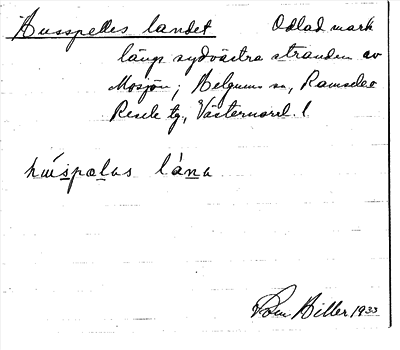 Husspelles landet Odlad mark
längs sydvästra stranden av
Mosjön; Helgums sn, Ramsele o
Resele tg, Västernorrl. l
huspalas lána
Hiller 1933